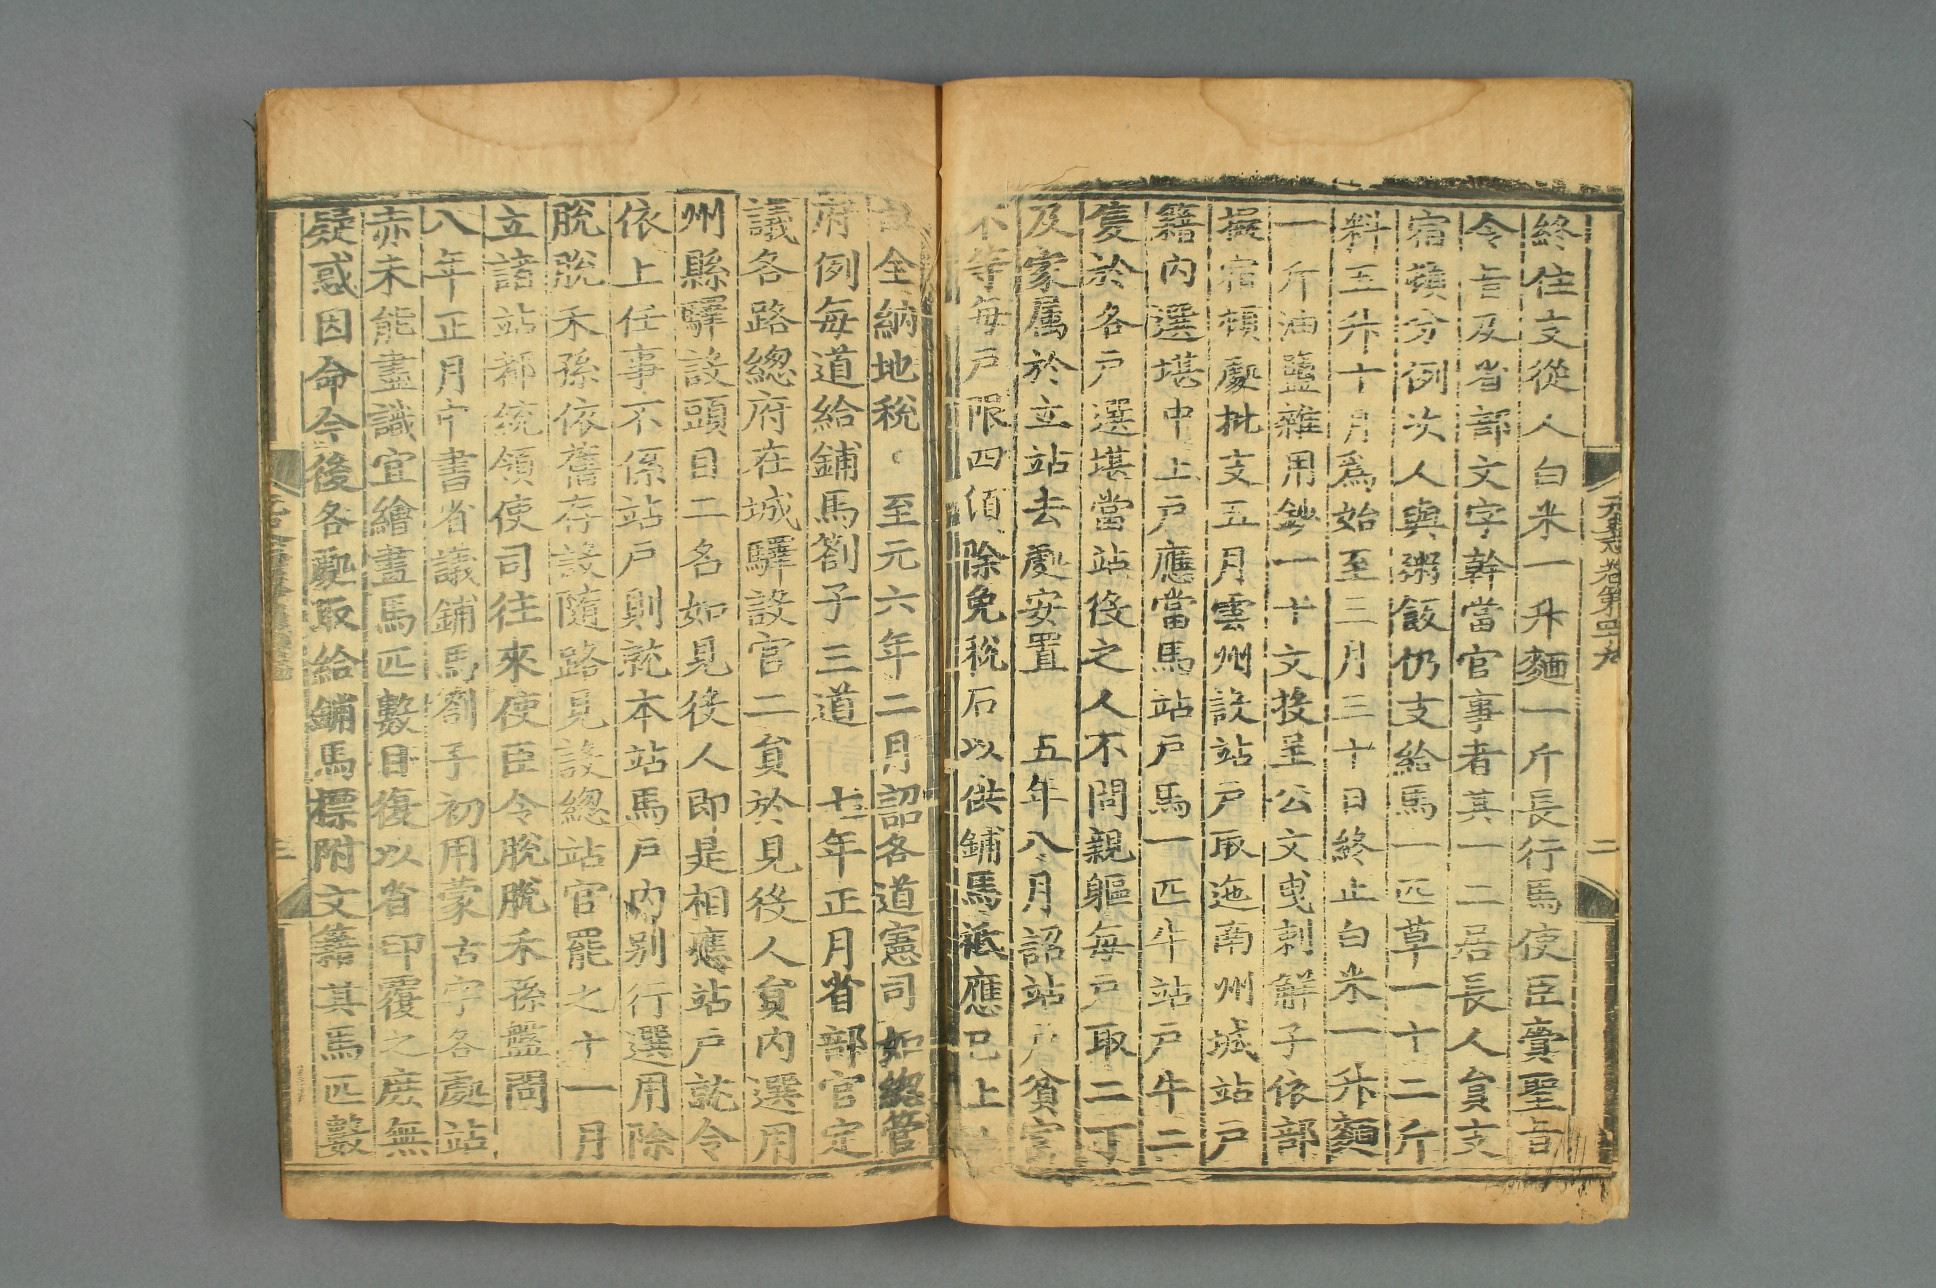 終住支從人白米一升麵一斤長行馬使臣賫聖旨
令旨及省部文字幹當官事者其一二居長人員支
宿頓分例次人與粥飯仍支給馬一匹草一十二斤
料五升十月爲始至三月三十日終止白米一升麵
一斤油鹽雜用鈔一十文投呈公文曳剌解子依部
擬宿頓處批支五月雲州設站戶取迤南州城站戶
籍內選堪中上戶應當馬站戶馬一匹牛站戶牛二
隻於各戶選堪當站役之人不問親軀每戶取二丁
及家属於立站去處安置 五年八月詔站戶貧富
不等每戶限四頃除免稅石以供鋪馬祗應已上
全納地稅。至元六年二月詔各道憲司如總管
府例每道給鋪馬劄子三道 七年正月省部官定
議各路總府在城驛設官二員於見役人員內選用
州縣驛設頭目二名如見役人即是相應站戶就令
依上任事不係站戶則就本站馬戶內别行選用除
脫脫禾孫依舊存設隨路見設總站官罷之十一月
立諸站都統領使司往來使臣令脫脫禾孫盤問
八年正月中書省議鋪馬劄子初用蒙古字各處站
赤未能盡識宜繪畫馬匹數目復以省印覆之庶無
疑惑因命今後各處取給鋪馬標附文籍其馬匹數
元史志卷第四十九
二